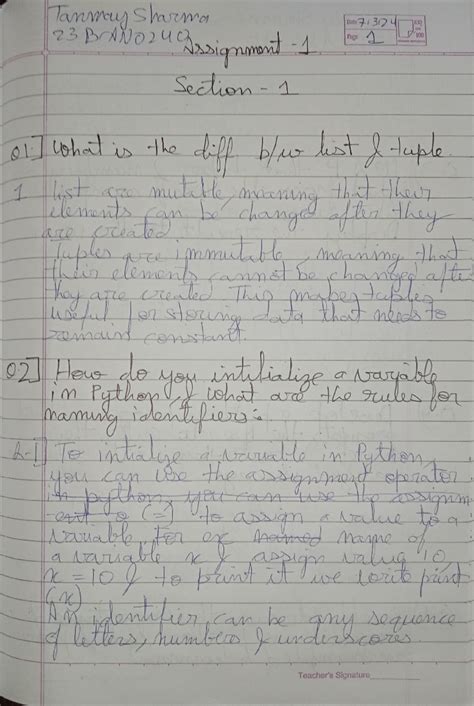 Tanmay Sharma
Date 7/3/24
23BAN0249
Page 1
Assignment - 1
Section - 1
01] What is the diff b/w list & tuple.
1 list are mutable, meaning that their
elements can be change after they
are created
Tuples are immutable, meaning that
their elements cannot be changed after
they are created. This makes tuples
useful for storing data that needs to
remain constant.
02] How do you intitialize a variable
in Python, & what are the rules for
naming identifiers:
2-] To intialize a variable in Python,
you can use the assignment operator
in python, you can use the assignm-
ent o (=) to assign a value to a
variable for ex named name of
a variable x & assign value 10
x = 10 & to print it we write print
(x)
An identifier can be any sequence
of letters, numbers & underscores.
Teacher's Signature